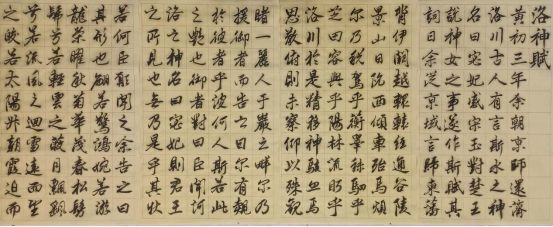 洛神賦
黃初三年余朝京師還濟
洛川古人有言斯水之神
名曰宓妃感宋玉對楚王
說神女之事遂作斯賦其
詞曰余從京域言歸東藩
背伊闕越轘轅經通谷陵
景山日既西傾車殆馬煩
尔乃稅駕乎蘅皋秣駟乎
芝田容與乎陽林流眄乎
洛川於是精移神駭忽焉
思散俯則未察仰以殊觀
睹一麗人于巖之畔尔乃
援御者而告之曰尔有覿
於彼者乎彼何人斯若此
之艷也御者對曰臣聞河
洛之神名曰宓妃則君王
之所見也無乃是乎其狀
若何臣願聞之余告之曰
其形也翩若驚鴻婉若游
龍榮曜秋菊華茂春松髣
髴兮若輕雲之蔽月飄飖
兮若流風之迴雪遠而望
之皎若太陽升朝霞迫而